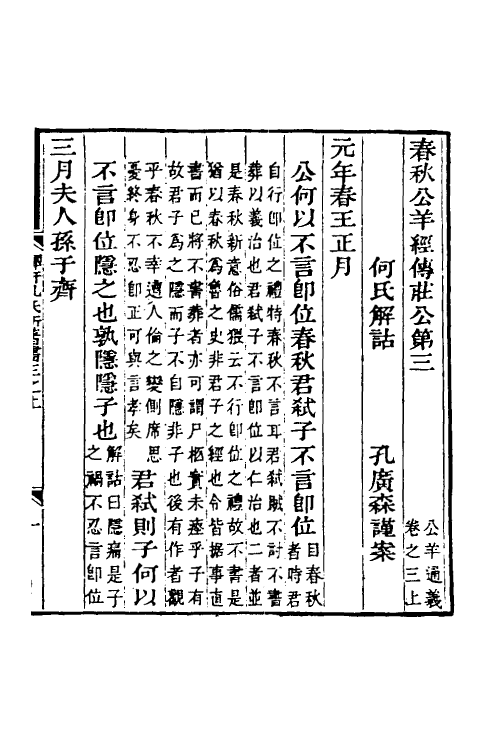 春秋公羊經傳莊公第三
公羊通義
卷之三上
何氏解詁 孔廣森謹案
元年春王正月
公何以不言卽位春秋君弑子不言卽位
目春秋
者時君
自行卽位之禮特春秋不言耳君弑賊不討不書
葬以義治也君弑子不言卽位以仁治也二者並
是春秋新意俗儒猥云不行卽位之禮故不書是
猶以春秋為魯之史非君子之經也令皆據事直
書而已將不書葬者亦可謂尸柩實未瘞乎子有
故君子為之隱而子不自隱非子也後有作者觀
乎春秋不幸遭人倫之變側席思
憂終身不忍卽正可與言孝矣
君弑則子何以
不言卽位隱之也孰隱隱子也
解詁曰隱痛是子
之禍不忍言卽位
三月夫人孫于齊
一